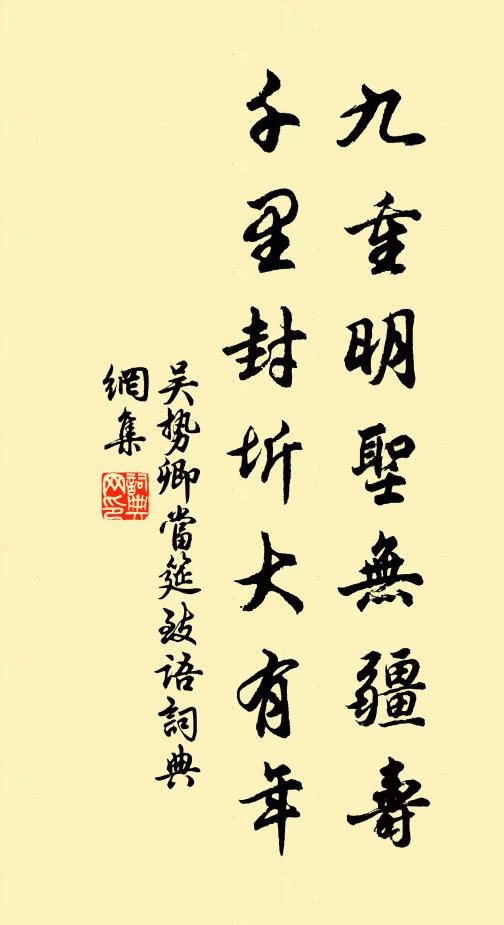 九重明聖無疆壽
千里封圻大有年
吴勢卿當筵致語詞典
網集
詞典
网印